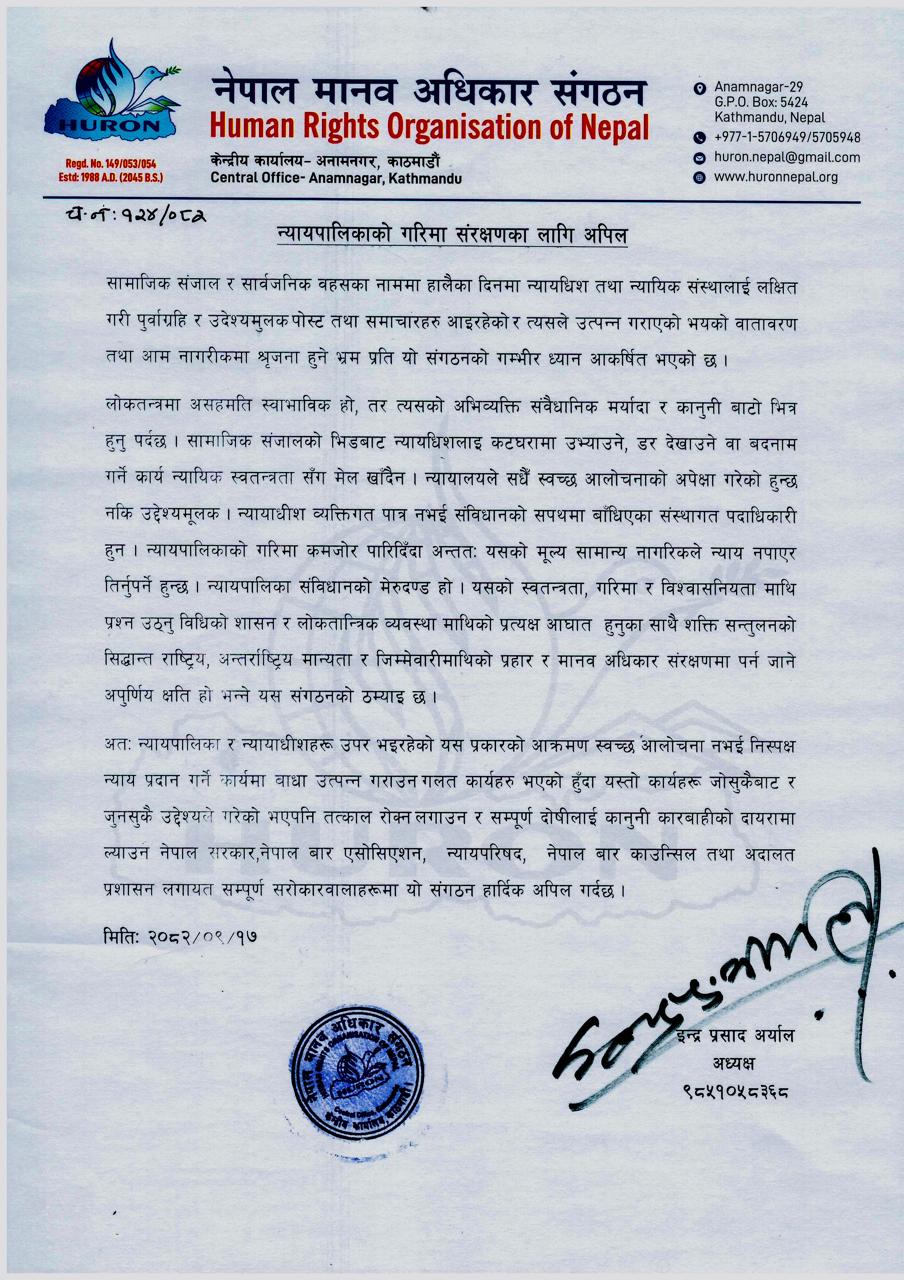 नेपाल मानव अधिकार संगठन
Human Rights Organisation of Nepal
केन्द्रीय कार्यालय– अनामनगर, काठमाडौं
Central Office- Anamnagar, Kathmandu
HURON
Regd. No. 149/053/054
Estd: 1988 A.D. (2045 B.S.)
Anamnagar-29
G.P.O. Box: 5424
Kathmandu, Nepal
+977-1-5706949/5705948
huron.nepal@gmail.com
www.huronnepal.org
च.नं: १२४/०८२
न्यायपालिकाको गरिमा संरक्षणका लागि अपिल
सामाजिक संजाल र सार्वजनिक वहसका नाममा हालैका दिनमा न्यायधिश तथा न्यायिक संस्थालाई लक्षित
गरी पुर्वाग्रहि र उदेश्यमुलक पोस्ट तथा समाचारहरु आइरहेको र त्यसले उत्पन्न गराएको भयको वातावरण
तथा आम नागरीकमा श्रृजना हुने भ्रम प्रति यो संगठनको गम्भीर ध्यान आकर्षित भएको छ ।
लोकतन्त्रमा असहमति स्वाभाविक हो, तर त्यसको अभिव्यक्ति संवैधानिक मर्यादा र कानुनी बाटो भित्र
हुनु पर्दछ । सामाजिक संजालको भिडबाट न्यायधिशलाइ कटघरामा उभ्याउने, डर देखाउने वा बदनाम
गर्ने कार्य न्यायिक स्वतन्त्रता सँग मेल खाँदैन । न्यायालयले सधैँ स्वच्छ आलोचनाको अपेक्षा गरेको हुन्छ
नकि उद्देश्यमूलक । न्यायाधीश व्यक्तिगत पात्र नभई संविधानको सपथमा बाँधिएका संस्थागत पदाधिकारी
हुन । न्यायपालिकाको गरिमा कमजोर पारिदिँदा अन्ततः यसको मूल्य सामान्य नागरिकले न्याय नपाएर
तिर्नुपर्ने हुन्छ । न्यायपालिका संविधानको मेरुदण्ड हो । यसको स्वतन्त्रता, गरिमा र विश्वासनियता माथि
प्रश्न उठ्नु विधिको शासन र लोकतान्त्रिक व्यवस्था माथिको प्रत्यक्ष आघात हुनुका साथै शक्ति सन्तुलनको
सिद्धान्त राष्ट्रिय, अन्तर्राष्ट्रिय मान्यता र जिम्मेवारीमाथिको प्रहार र मानव अधिकार संरक्षणमा पर्न जाने
अपुर्णिय क्षति हो भन्ने यस संगठनको ठम्याइ छ ।
अतः न्यायपालिका र न्यायाधीशहरू उपर भइरहेको यस प्रकारको आक्रमण स्वच्छ आलोचना नभई निस्पक्ष
न्याय प्रदान गर्ने कार्यमा बाधा उत्पन्न गराउन गलत कार्यहरु भएको हुँदा यस्तो कार्यहरू जोसुकैबाट र
जुनसुकै उद्देश्यले गरेको भएपनि तत्काल रोक्न लगाउन र सम्पूर्ण दोषीलाई कानुनी कारबाहीको दायरामा
ल्याउन नेपाल सरकार,नेपाल बार एसोसिएशन, न्यायपरिषद, नेपाल बार काउन्सिल तथा अदालत
प्रशासन लगायत सम्पूर्ण सरोकारवालाहरूमा यो संगठन हार्दिक अपिल गर्दछ ।
मितिः २०८२/०९/१७
इन्द्र प्रसाद अर्याल
अध्यक्ष
९८५१०५८३६८
नेपाल मानव अधिकार संगठन
HUMAN RIGHTS ORGANISATION OF NEPAL
HURON
Central Office,
केन्द्रीय कार्यालय, काठमाडौं ।
HURON